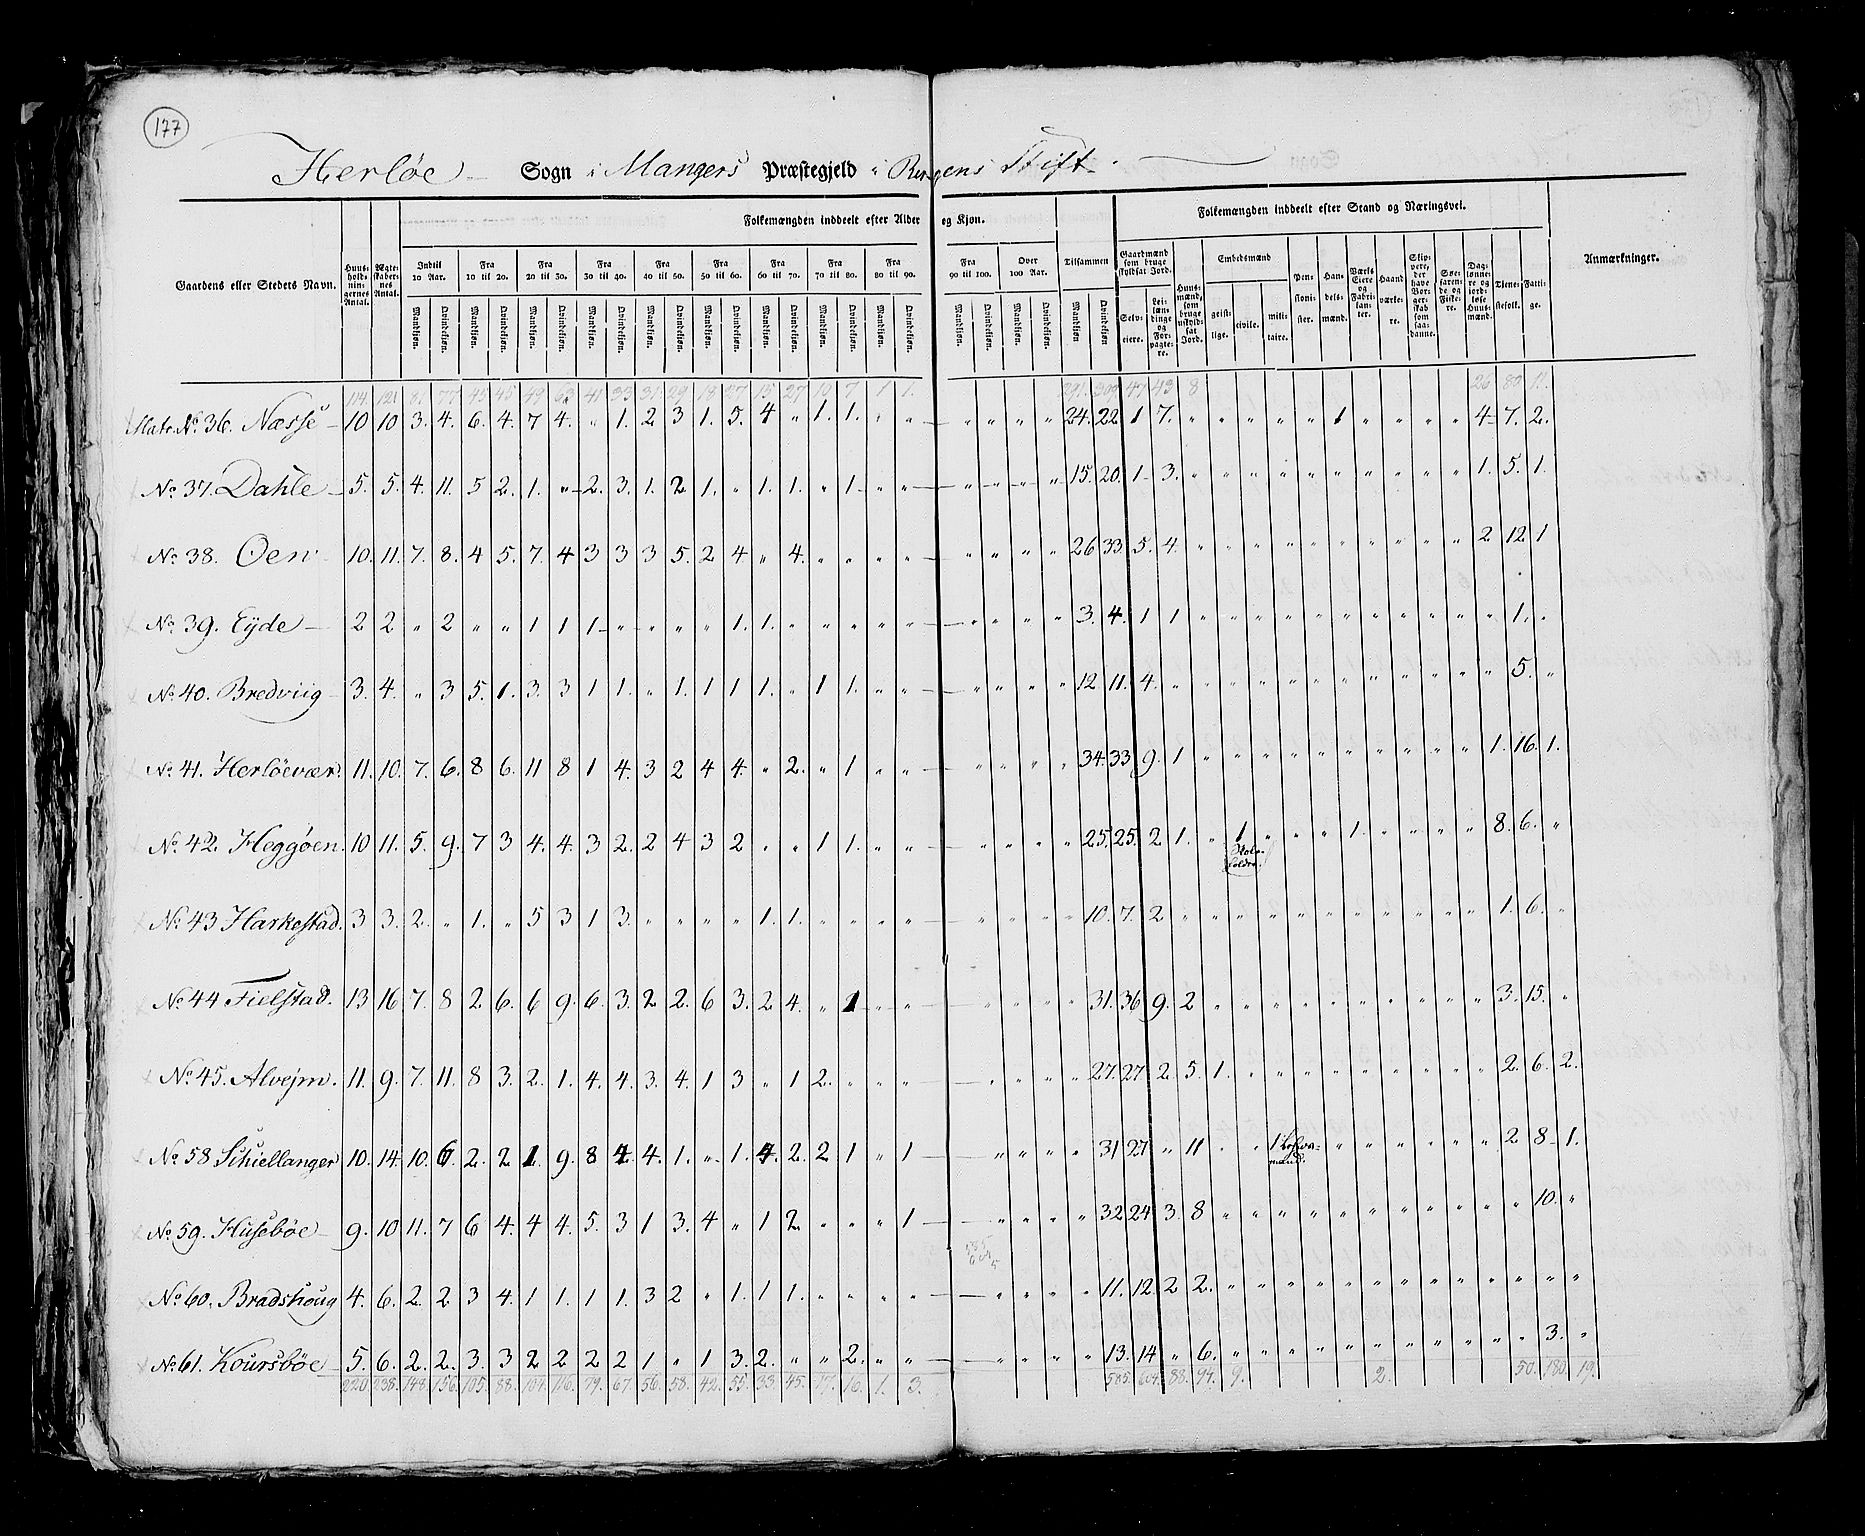 177
Herløe Sogn i Mangers Præstegjeld i Bergens Stift
Folkemængden inddeelt efter Alder og Kjøn. Folkemængden inddeelt efter Stand og Næringsvei.
Gaardens eller Stedets Navn. Huus-holdnin-gernes Antal. Ægte-skaber-nes Antal. Indtil 10 Aar. Fra 10 til 20. Fra 20 til 30. Fra 30 til 40. Fra 40 til 50. Fra 50 til 60. Fra 60 til 70. Fra 70 til 80. Fra 80 til 90. Fra 90 til 100. Over 100 Aar. Tilsammen Gaardmænd som bruge skyldsat Jord. Huus-mænd, som bruge uskyldsat Jord. Embedsmænd Pen-sioni-ster. Han-dels-mænd. Værks Eiere og Fabri-kan-ter. Haand værke-re. Skip-pere, der have Bor-ger-skab som saa-danne. Søe-farende og Fiske-re. Dag-lønne-re og jord-løse Huus-mænd. Tiene-stefolk. Fatti-ge. Anmærkninger.
Mandkjøn. Qvindekjøn. Mandkjøn. Qvindekjøn. Mandkjøn. Qvindekjøn. Mandkjøn. Qvindekjøn. Mandkjøn. Qvindekjøn. Mandkjøn. Qvindekjøn. Mandkjøn. Qvindekjøn. Mandkjøn. Qvindekjøn. Mandkjøn. Qvindekjøn. Mandkjøn. Qvindekjøn. Mandkjøn. Qvindekjøn. Mandkjøn Qvindekjøn Selv-eiere. Lei-læn-dinge og For-pagte-re. geist-lige. civile. mili-taire.
114. 121 81. 77. 45 45 49. 63 41 33 31. 29. 18. 27. 15. 27 10 7 1 1. 291. 309 47 43 8 26. 80 12.
Matr. No. 36. Næsse 10 10 3. 4. 6. 4. 7 4. „ 1. 2 3 1. 5. 4 „ 1. 1. „ „ „ „ „ „ 24. 22 1 7. „ „ „ „ „ „ 1 „ „ „ „ 4 7. 2.
No. 37. Dahle 5. 5. 4. 11. 5 2. 1. „ 2. 3. 1. 2 1. „ 1. 1. „ 1 „ „ „ „ „ „ 15. 20. 1 3. „ „ „ „ „ „ „ „ „ „ „ 1. 5. 1.
No. 38. Oen 10. 11. 7. 8. 4 5. 7. 4 3 3 3 5. 2 4. „ 4. „ „ „ „ „ „ „ „ 26 33 5. 4. „ „ „ „ „ „ „ „ „ „ „ 2 12 1
No. 39. Eyde 2 2 „ 2 „ „ 1 1 1 „ „ „ „ 1. 1. „ „ „ „ „ „ „ „ „ 3. 4. 1 1 „ „ „ „ „ „ „ „ „ „ „ „ 1. „
No. 40. Bredviig 3. 4. „ 3 5. 1. 3. 3 1 1. „ 1. 1 1 1. „ 1 1. „ „ „ „ „ „ 12 11. 4. „ „ „ „ „ „ „ „ „ „ „ „ „ 5. „
No. 41. Herløevær. 11. 10. 7. 6. 8 6. 11 8 1 4. 3 2 4 4. „ 2. „ 1 „ „ „ „ „ „ 34. 33 9. 1 „ „ „ „ „ „ „ „ „ „ „ 1. 16. 1.
No. 42. Heggøen. 10 11. 5. 9. 7 3 4. 4. 3 2. 2 4 3 2 „ „ 1 1. „ „ „ „ „ „ 25. 25. 2 1. „ 1 „ „ „ „ 1. „ „ „ „ 8. 6. „
No. 43 Harkestad. 3 3. 2. „ 1. „ 5 3 1 3. „ „ „ „ 1. 1. „ „ „ „ „ „ „ „ 10. 7. 2 „ „ „ „ „ „ „ „ „ „ „ „ 1. 6. „
No. 44 Fielstad. 13 16 7. 8 2 6. 6 9. 6. 3. 2 2. 6 3. 2 4. „ 1 „ „ „ „ „ „ 31. 36 9. 2 „ „ „ „ „ „ „ „ „ „ „ 3. 15. „
No. 45. Alvejm. 11. 9. 7. 11. 8 3. 2. 1. 4. 4. 3. 4. 1 3 „ 1 2. „ „ „ „ „ „ „ 27. 27 2. 5. 1. „ „ „ „ „ „ „ „ „ „ 2. 6. 2.
No. 58 Schiellanger 10. 14. 10. 6. 2. 2 1 9. 8 4. 4. 1. „ 1. 4. 2. 2 1 „ 1 „ „ „ „ 31 27 „ 11 „ „ 1 „ „ „ „ „ „ „ 2 8 1.
No. 59. Husebøe 9. 10 11. 7 6 4. 4 4. 5. 3 1 3. 4 „ 1 2 „ „ „ 1 „ „ „ „ 32 24 3. 8 „ „ „ „ „ „ „ „ „ „ „ „ 10. „
No. 60. Bradshoug 4. 6. 2. 2 3 4. 1 1. 1 1. 3 2 „ 1. 1 1. „ „ „ „ „ „ „ „ 11. 12. 2 2. „ „ „ „ „ „ „ „ „ „ „ „ „ „
No. 61. Koursbøe 5. 6. 2. 2. 3. 3 2 2 2 2 1 „ 1 3. 2. „ „ 2. „ „ „ „ „ „ 13. 14 „ 6. „ „ „ „ „ „ „ „ „ „ „ „ 3. „
220. 238. 148. 156. 105. 88. 104. 116. 79. 67. 56. 58. 42. 55. 33. 45. 17. 16. 1. 3. 585. 604. 88. 94. 9. 2. 50. 180. 19.